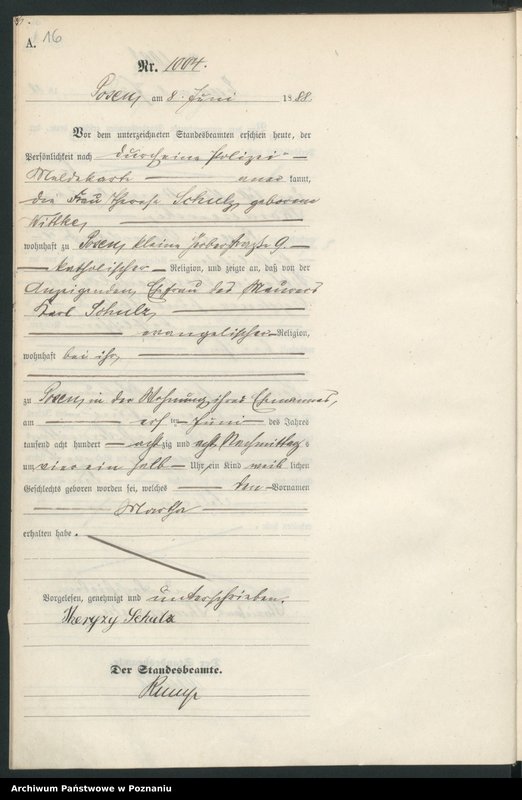 A. 16
Nr. 1004.
Posen, am 8. Juni 1888
Vor dem unterzeichneten Standesbeamten erschien heute, der
Persönlichkeit nach durch eine Polizei-
Meldekarte kannt,
die Frau Therese Schulz, geborene
Wittke,
wohnhaft zu Posen, kleine Gerberstraße 9,
katholischer Religion, und zeigte an, daß von der
Anzeigenden, Ehefrau des Maurers
Karl Schulz,
evangelischer Religion,
wohnhaft bei ihr,
zu Posen, in der Wohnung ihres Ehemannes,
am ten Juni des Jahres
tausend acht hundert achtzig und acht Nachmittags
um vier ein halb Uhr, ein Kind weiblichen
Geschlechts geboren worden sei, welches den Vornamen
Martha
erhalten habe.
Vorgelesen, genehmigt und unterschrieben.
Schulz
Der Standesbeamte.
Archiwum Państwowe w Poznaniu